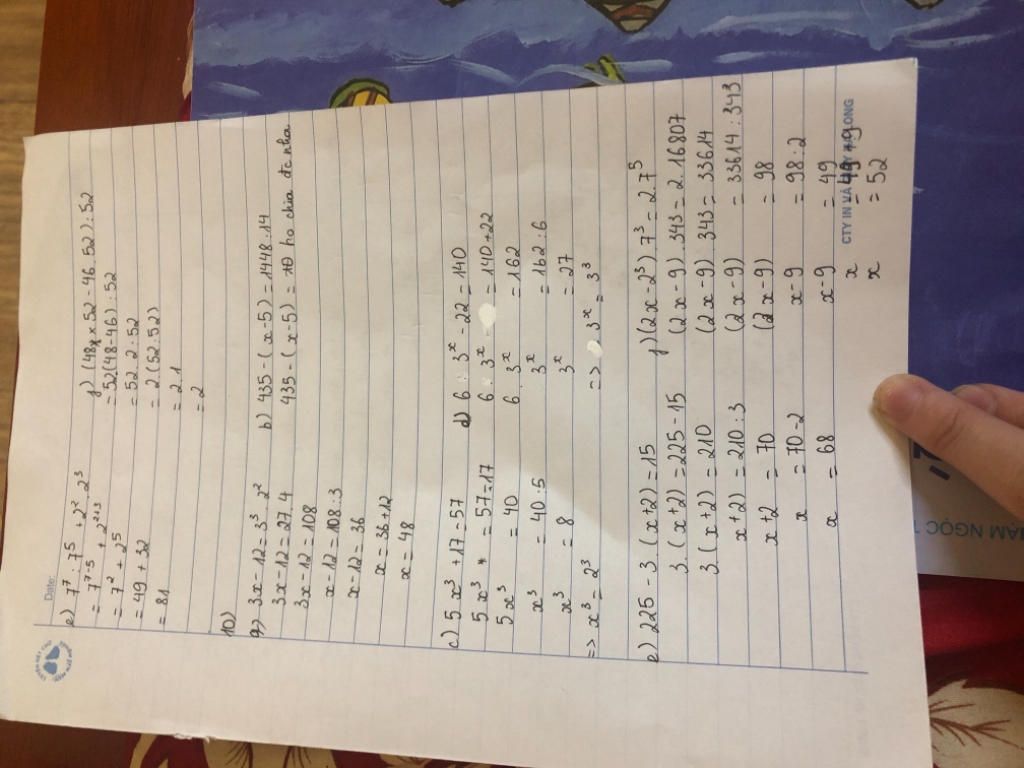 Date:
e) 7⁷ : 7⁵ + 2² . 2³
= 7⁷⁻⁵ + 2²⁺³
= 7² + 2⁵
= 49 + 32
= 81
f) (48 x 52 - 46 . 52) : 52
= 52(48-46) : 52
= 52 . 2 : 52
= 2 (52:52)
= 2 . 1
= 2
10)
a) 3x - 12 = 3³ . 2²
3x - 12 = 27 . 4
3x - 12 = 108
x - 12 = 108 : 3
x - 12 = 36
x = 36 + 12
x = 48
b) 435 - (x-5) = 1448 : 14
435 - (x-5) = ko chia đc nha
c) 5x³ + 17 = 57
5x³ = 57 - 17
5x³ = 40
x³ = 40 : 5
x³ = 8
=> x³ = 2³
d) 6 . 3ˣ - 22 = 140
6 . 3ˣ = 140 + 22
6 . 3ˣ = 162
3ˣ = 162 : 6
3ˣ = 27
=> 3ˣ = 3³
e) 225 - 3 . (x+2) = 15
3 . (x+2) = 225 - 15
3 . (x+2) = 210
x+2) = 210 : 3
x+2 = 70
x = 70 - 2
x = 68
f) (2x - 2³) 7³ = 2.7⁵
(2x - 9) . 343 = 2 . 16807
(2x - 9) . 343 = 33614
(2x - 9) = 33614 : 343
(2x - 9) = 98
x - 9 = 98 : 2
x - 9 = 49
x = 49 + 9
x = 52
CTY IN VÀ LONG